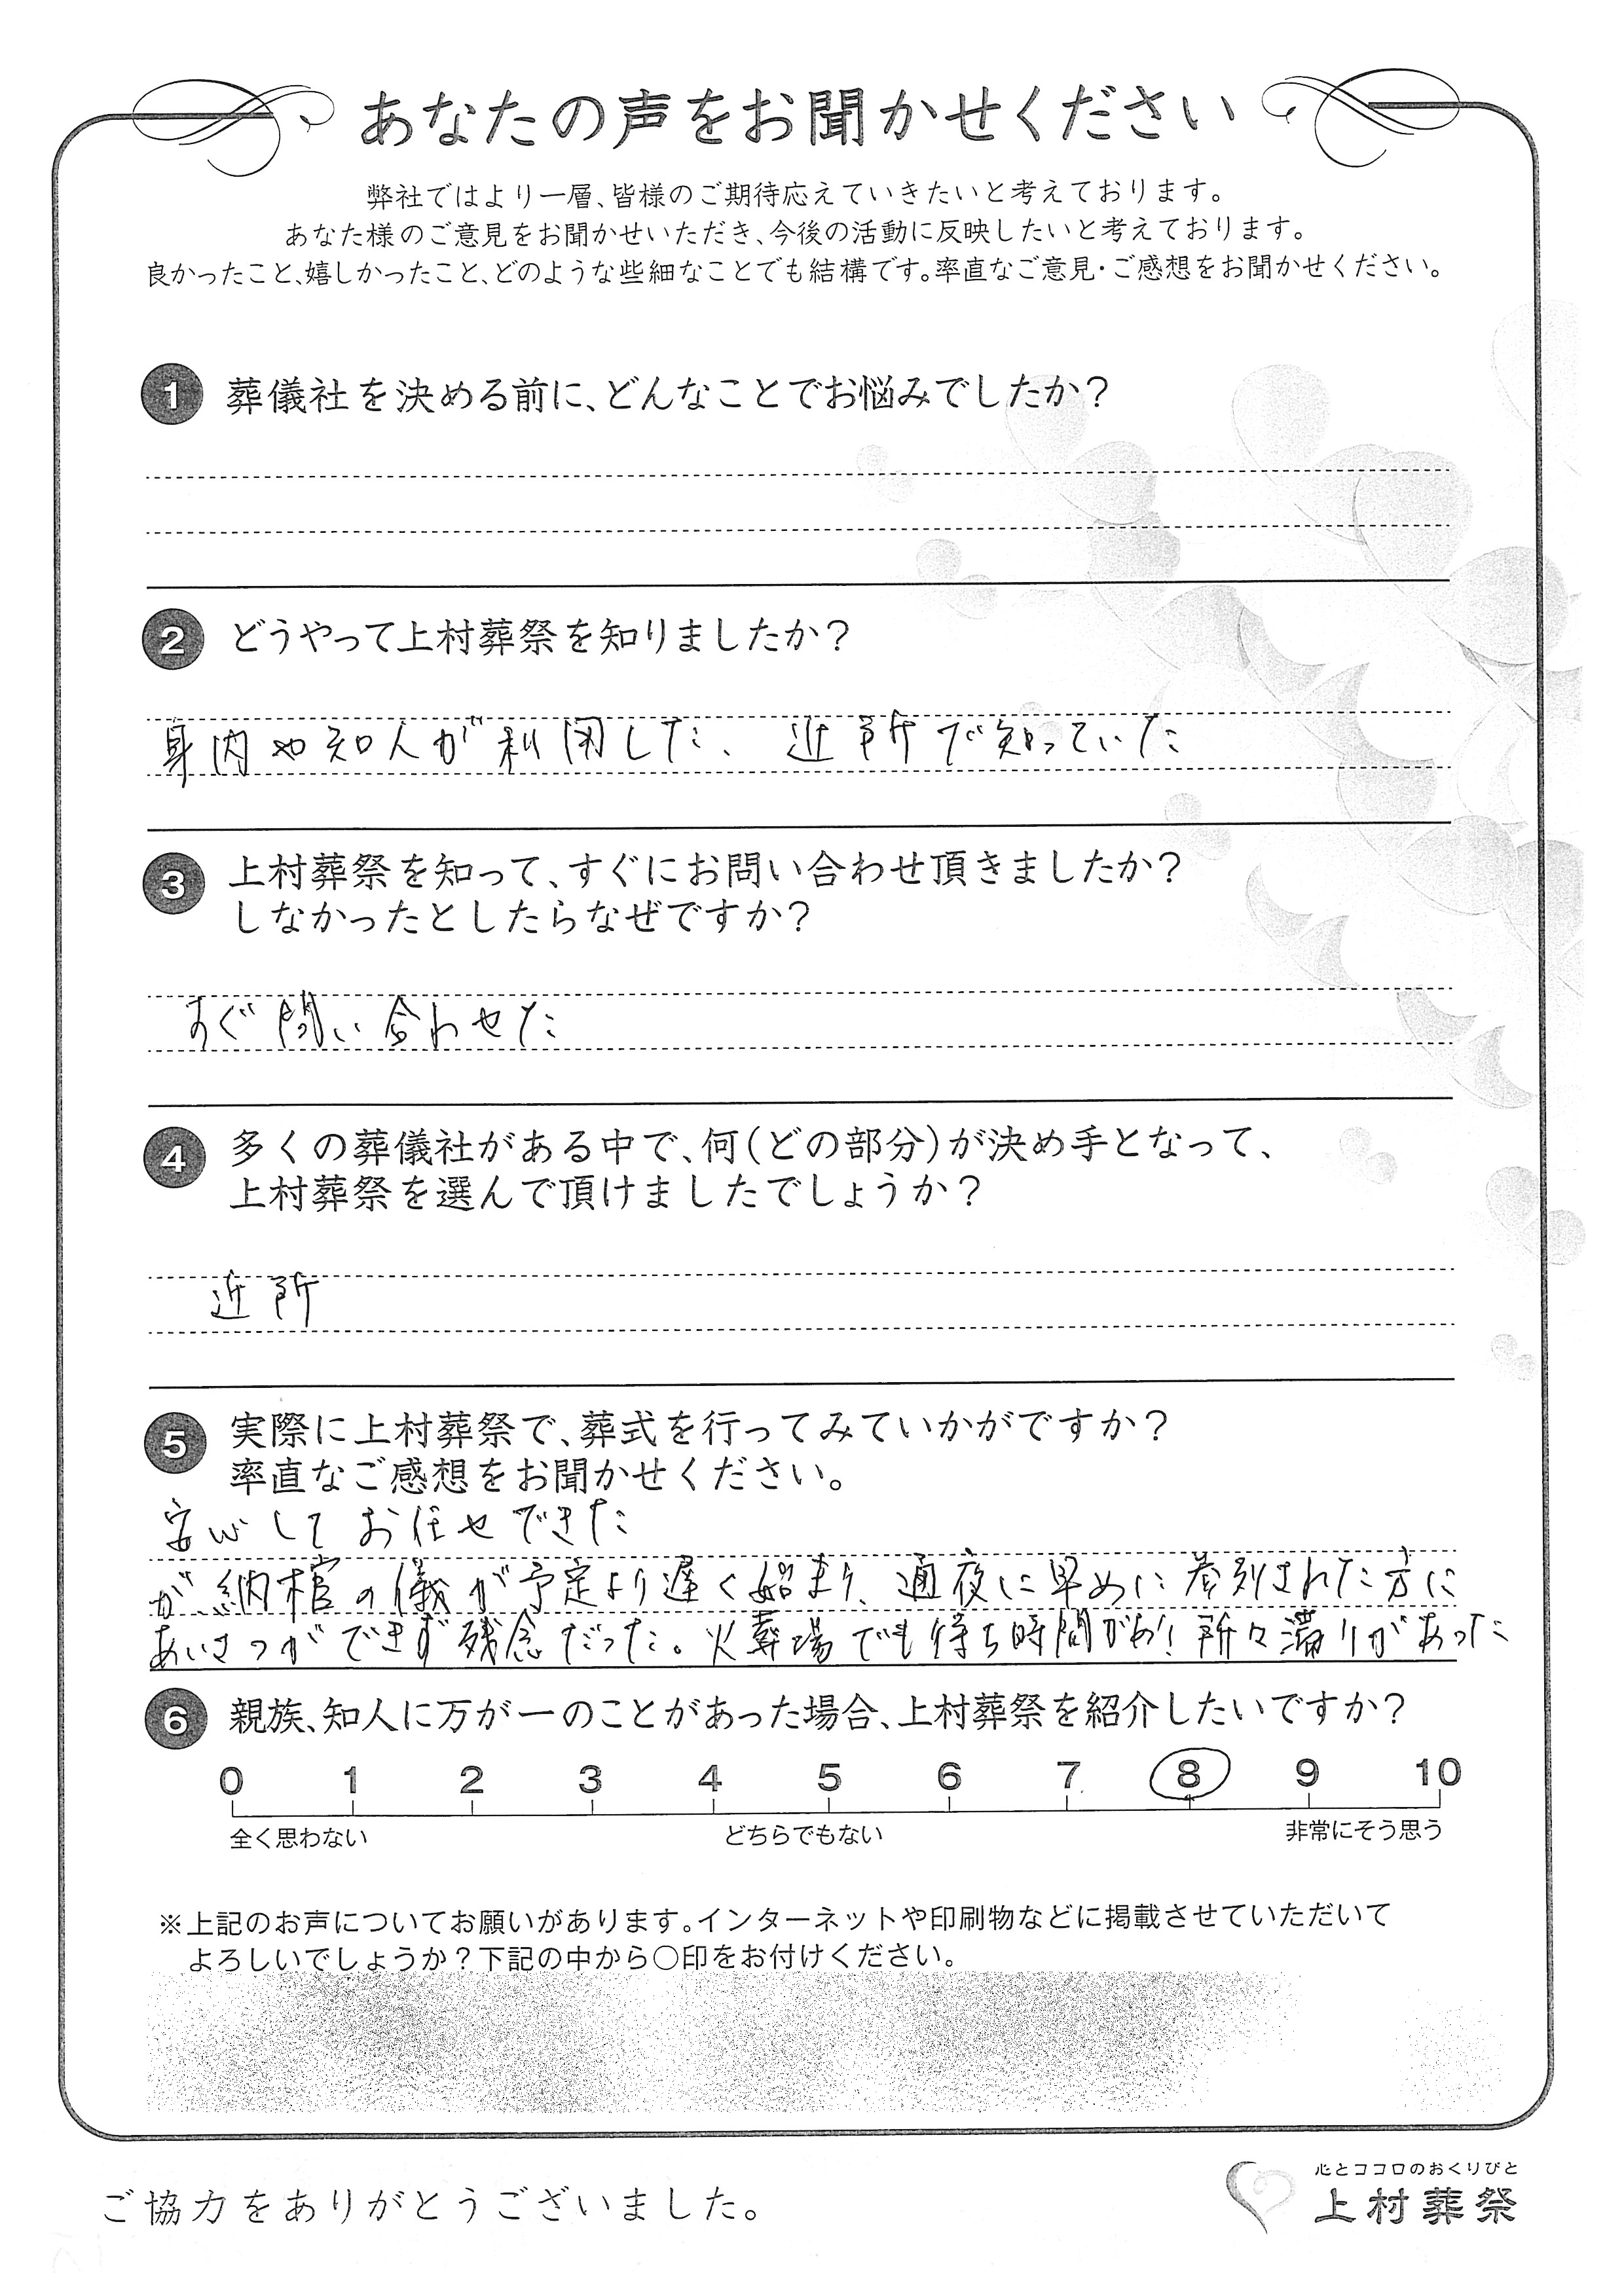 あなたの声をお聞かせください
弊社ではより一層、皆様のご期待応えていきたいと考えております。
あなた様のご意見をお聞かせいただき、今後の活動に反映したいと考えております。
良かったこと、嬉しかったこと、どのような些細なことでも結構です。率直なご意見・ご感想をお聞かせください。
1 葬儀社を決める前に、どんなことでお悩みでしたか？
2 どうやって上村葬祭を知りましたか？
身内や知人が利用した、近所で知っていた
3 上村葬祭を知って、すぐにお問い合わせ頂きましたか？
しなかったとしたらなぜですか？
すぐ問い合わせた
4 多くの葬儀社がある中で、何（どの部分）が決め手となって、
上村葬祭を選んで頂けましたでしょうか？
近所
5 実際に上村葬祭で、葬式を行ってみていかがですか？
率直なご感想をお聞かせください。
安心してお任せできた
が、納棺の儀が予定より遅く始まり、通夜に早めに参列された方に
あいさつができず残念だった。火葬場でも待ち時間があり 所々滞りがあった
6 親族、知人に万が一のことがあった場合、上村葬祭を紹介したいですか？
0 1 2 3 4 5 6 7 8 9 10
全く思わない どちらでもない 非常にそう思う
※上記のお声についてお願いがあります。インターネットや印刷物などに掲載させていただいて
よろしいでしょうか？下記の中から〇印をお付けください。
ご協力をありがとうございました。
心とココロのおくりびと
上村葬祭